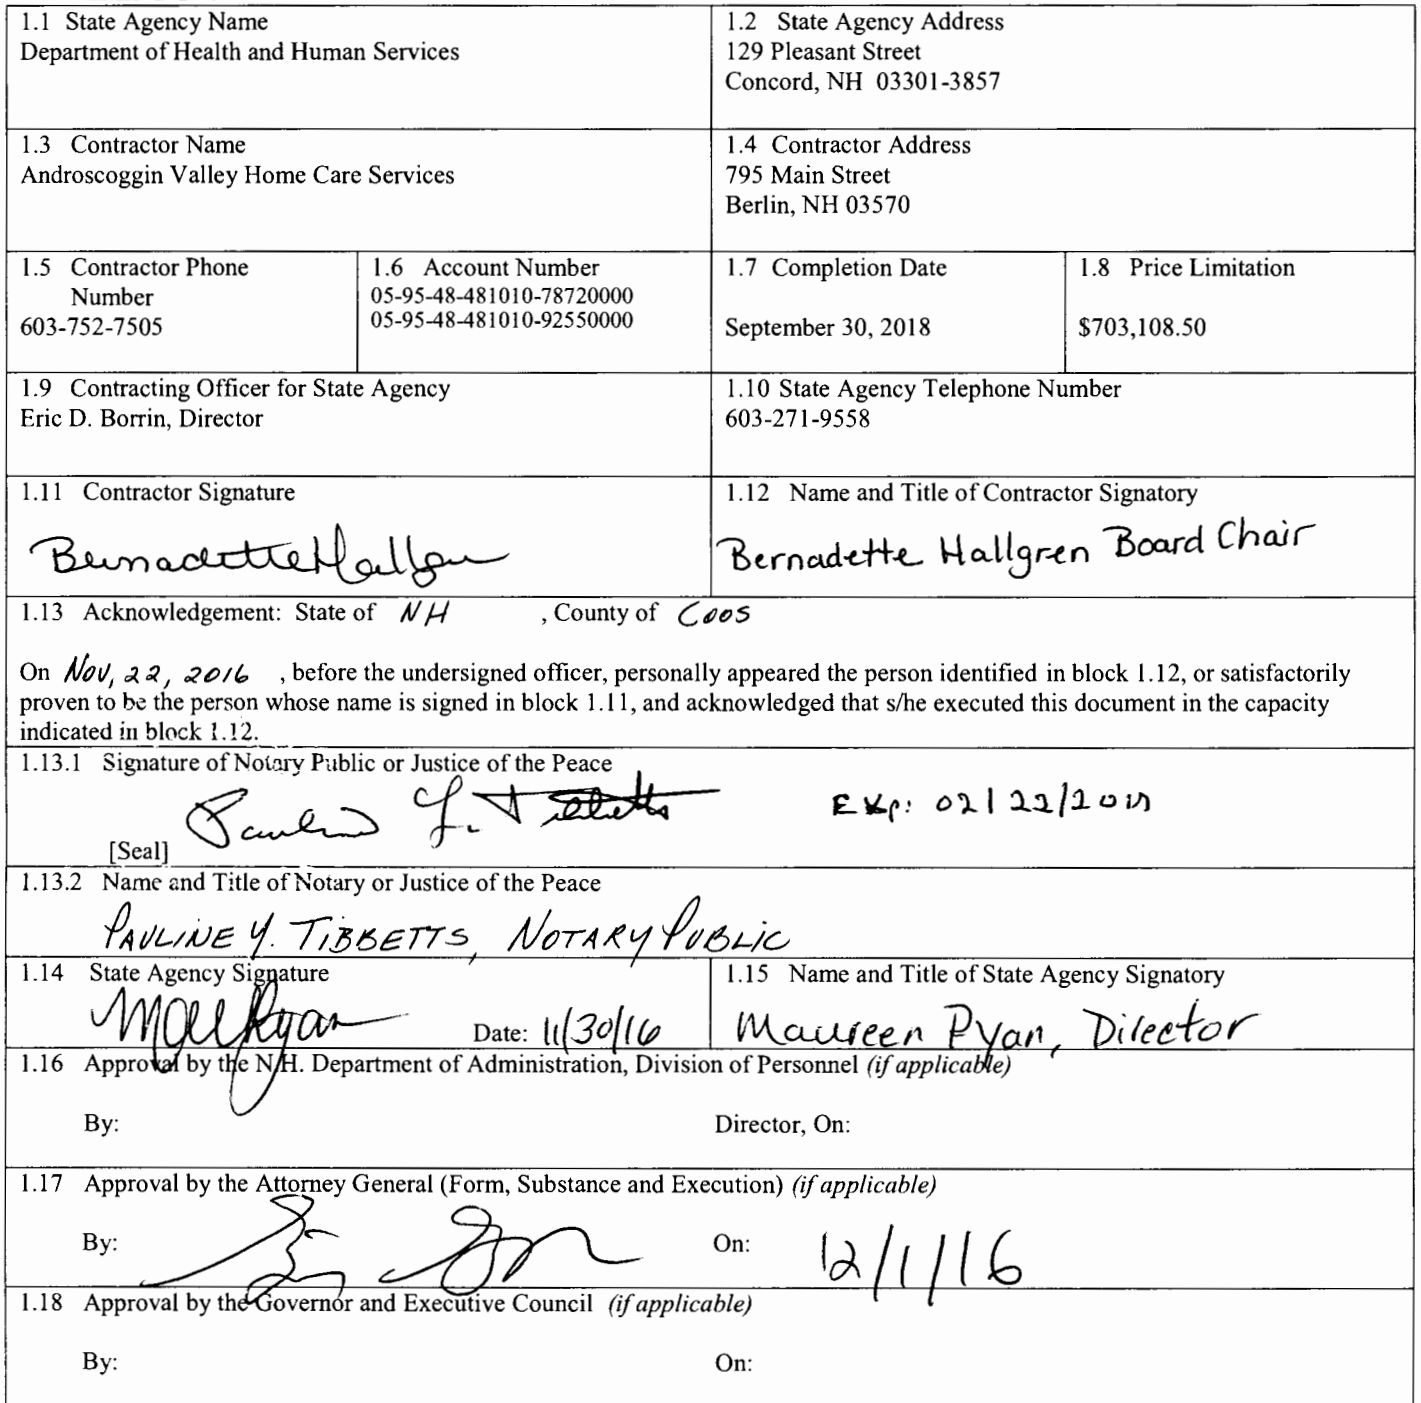 1.1 State Agency Name
Department of Health and Human Services
1.2 State Agency Address
129 Pleasant Street
Concord, NH 03301-3857
1.3 Contractor Name
Androscoggin Valley Home Care Services
1.4 Contractor Address
795 Main Street
Berlin, NH 03570
1.5 Contractor Phone
Number
603-752-7505
1.6 Account Number
05-95-48-481010-78720000
05-95-48-481010-92550000
1.7 Completion Date
September 30, 2018
1.8 Price Limitation
$703,108.50
1.9 Contracting Officer for State Agency
Eric D. Borrin, Director
1.10 State Agency Telephone Number
603-271-9558
1.11 Contractor Signature
Bernadette Hallgren
1.12 Name and Title of Contractor Signatory
Bernadette Hallgren Board Chair
1.13 Acknowledgement: State of NH , County of Coos
On Nov, 22, 2016 , before the undersigned officer, personally appeared the person identified in block 1.12, or satisfactorily
proven to be the person whose name is signed in block 1.11, and acknowledged that s/he executed this document in the capacity
indicated in block 1.12.
1.13.1 Signature of Notary Public or Justice of the Peace
Pauline Y. Tibbetts Exp: 02/22/
[Seal]
1.13.2 Name and Title of Notary or Justice of the Peace
PAULINE Y. TIBBETTS, NOTARY PUBLIC
1.14 State Agency Signature
Date: 11/30/16
1.15 Name and Title of State Agency Signatory
Maureen Ryan, Director
1.16 Approval by the N.H. Department of Administration, Division of Personnel (if applicable)
By: Director, On:
1.17 Approval by the Attorney General (Form, Substance and Execution) (if applicable)
By: On: 12/1/16
1.18 Approval by the Governor and Executive Council (if applicable)
By: On: